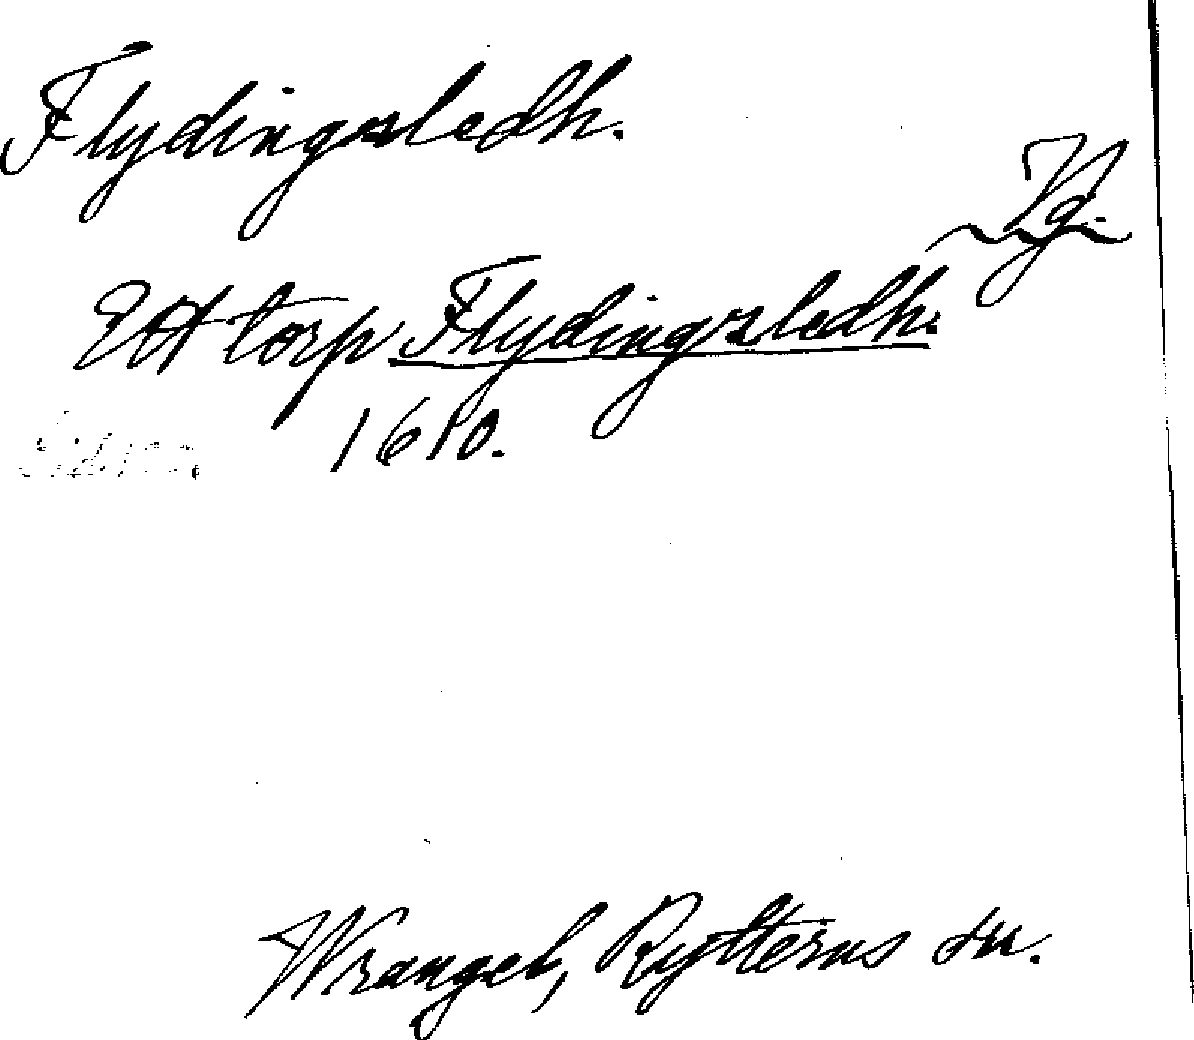 Flydingsledh.
Vg.
Ett torp Flydingsledh.
1610.
Wrangel, Rytterns sn.